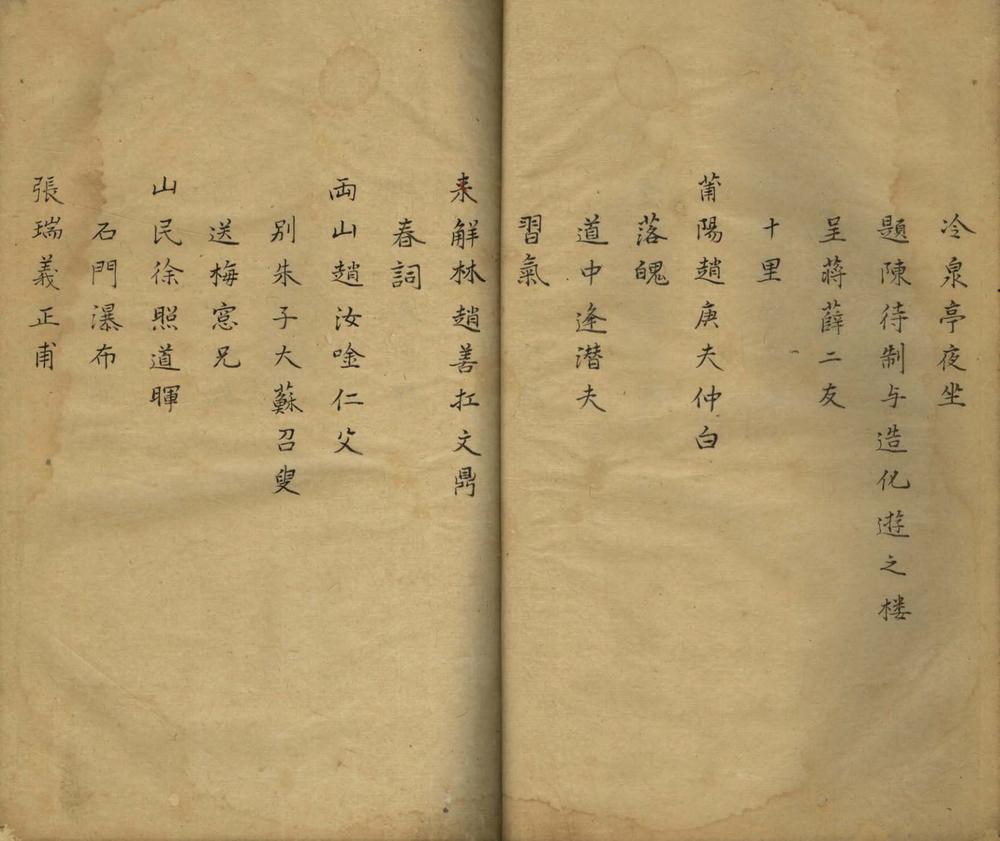 冷泉亭夜坐
題陳待制与造化遊之楼
呈蔣薛二友
十里
莆陽趙庚夫仲白
落魄
道中逢潜夫
習氣
来解林趙善扛文鼎
春詞
両山趙汝唫仁父
别朱子大蘇召叟
送梅窓兄
山民徐照道暉
石門瀑布
張瑞義正甫